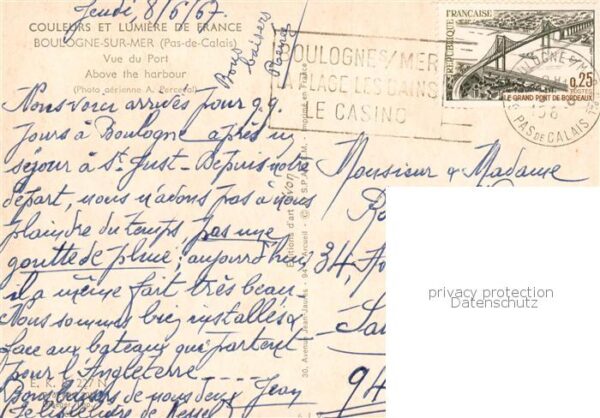 Jeudi, 8/6/67.
COULEURS ET LUMIÈRE DE FRANCE
BOULOGNE-SUR-MER (Pas-de-Calais)
Vue du Port
Above the harbour
(Photo aérienne A. Perceval)
Bons
baisers
BOULOGNE S/MER
LA PLAGE LES BAINS
LE CASINO
RÉPUBLIQUE
FRANÇAISE
0,25
POSTES
LE GRAND PONT DE BORDEAUX
BOULOGNE S/MER
PAS DE CALAIS
Nous voici arrivés pour qq.
jours à Boulogne après un
séjour à St Just. Depuis notre
départ, nous n'avons pas à nous
plaindre du temps pas une
goutte de pluie; aujourd'hui
il a même fait très beau
Nous sommes bien installés
face aux bateaux qui partent
pour l'Angleterre
Bons baisers de nous deux Jean
E. K. 227 N
Editions d'art Yvon
30, Avenue Jean Jaurès - 94 - Arcueil
Imprimé en France
Monsieur & Madame
34,
94
privacy protection
Datenschutz